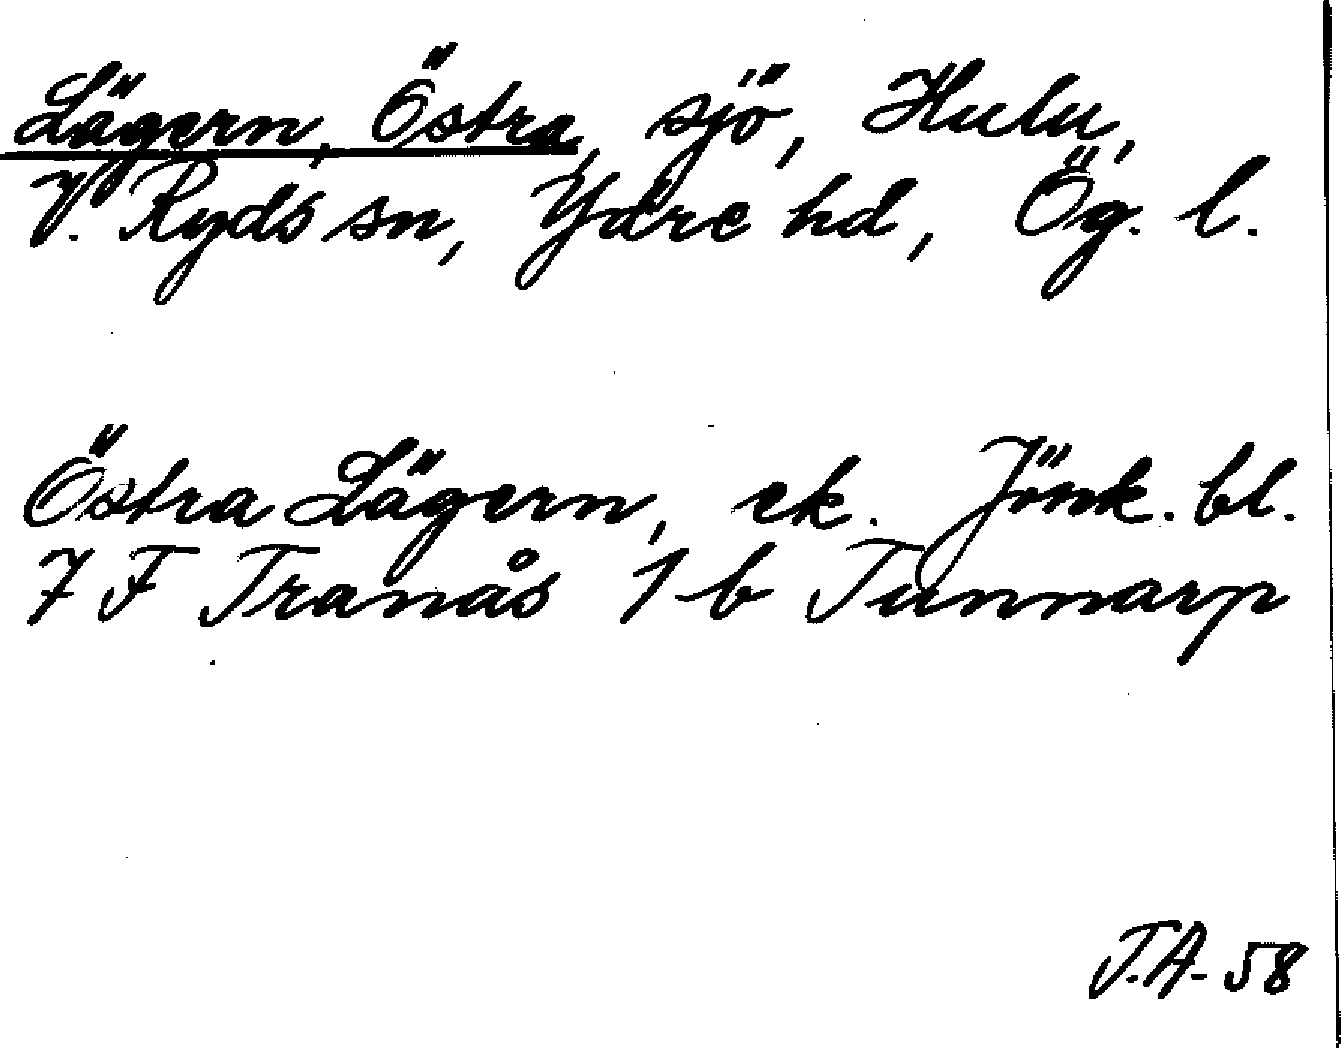 Lägern, Östra, sjö, Hulu,
V. Ryds sn, Ydre hd, Ög. l.
Östra Lägern, ek. Jönk. bl.
7 F Tranås 1 b Tunnarp
J.A. 58